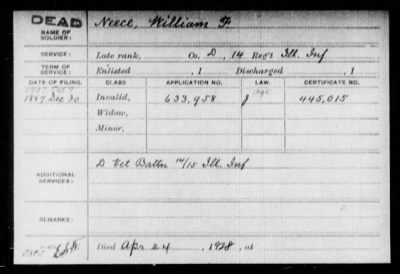 DEAD
NAME OF SOLDIER: Neece, William F.
SERVICE: Late rank, Co. D, 14 Reg't Ill. Inf
TERM OF SERVICE: Enlisted , 1 Discharged , 1
DATE OF FILING. CLASS. APPLICATION NO. LAW. CERTIFICATE NO.
1887 Dec 30 Invalid, 633,958 J 445,015
Widow,
Minor,
ADDITIONAL SERVICES: D Vet Battn 14/15 Ill. Inf
REMARKS:
Died Apr 24, 1928, at